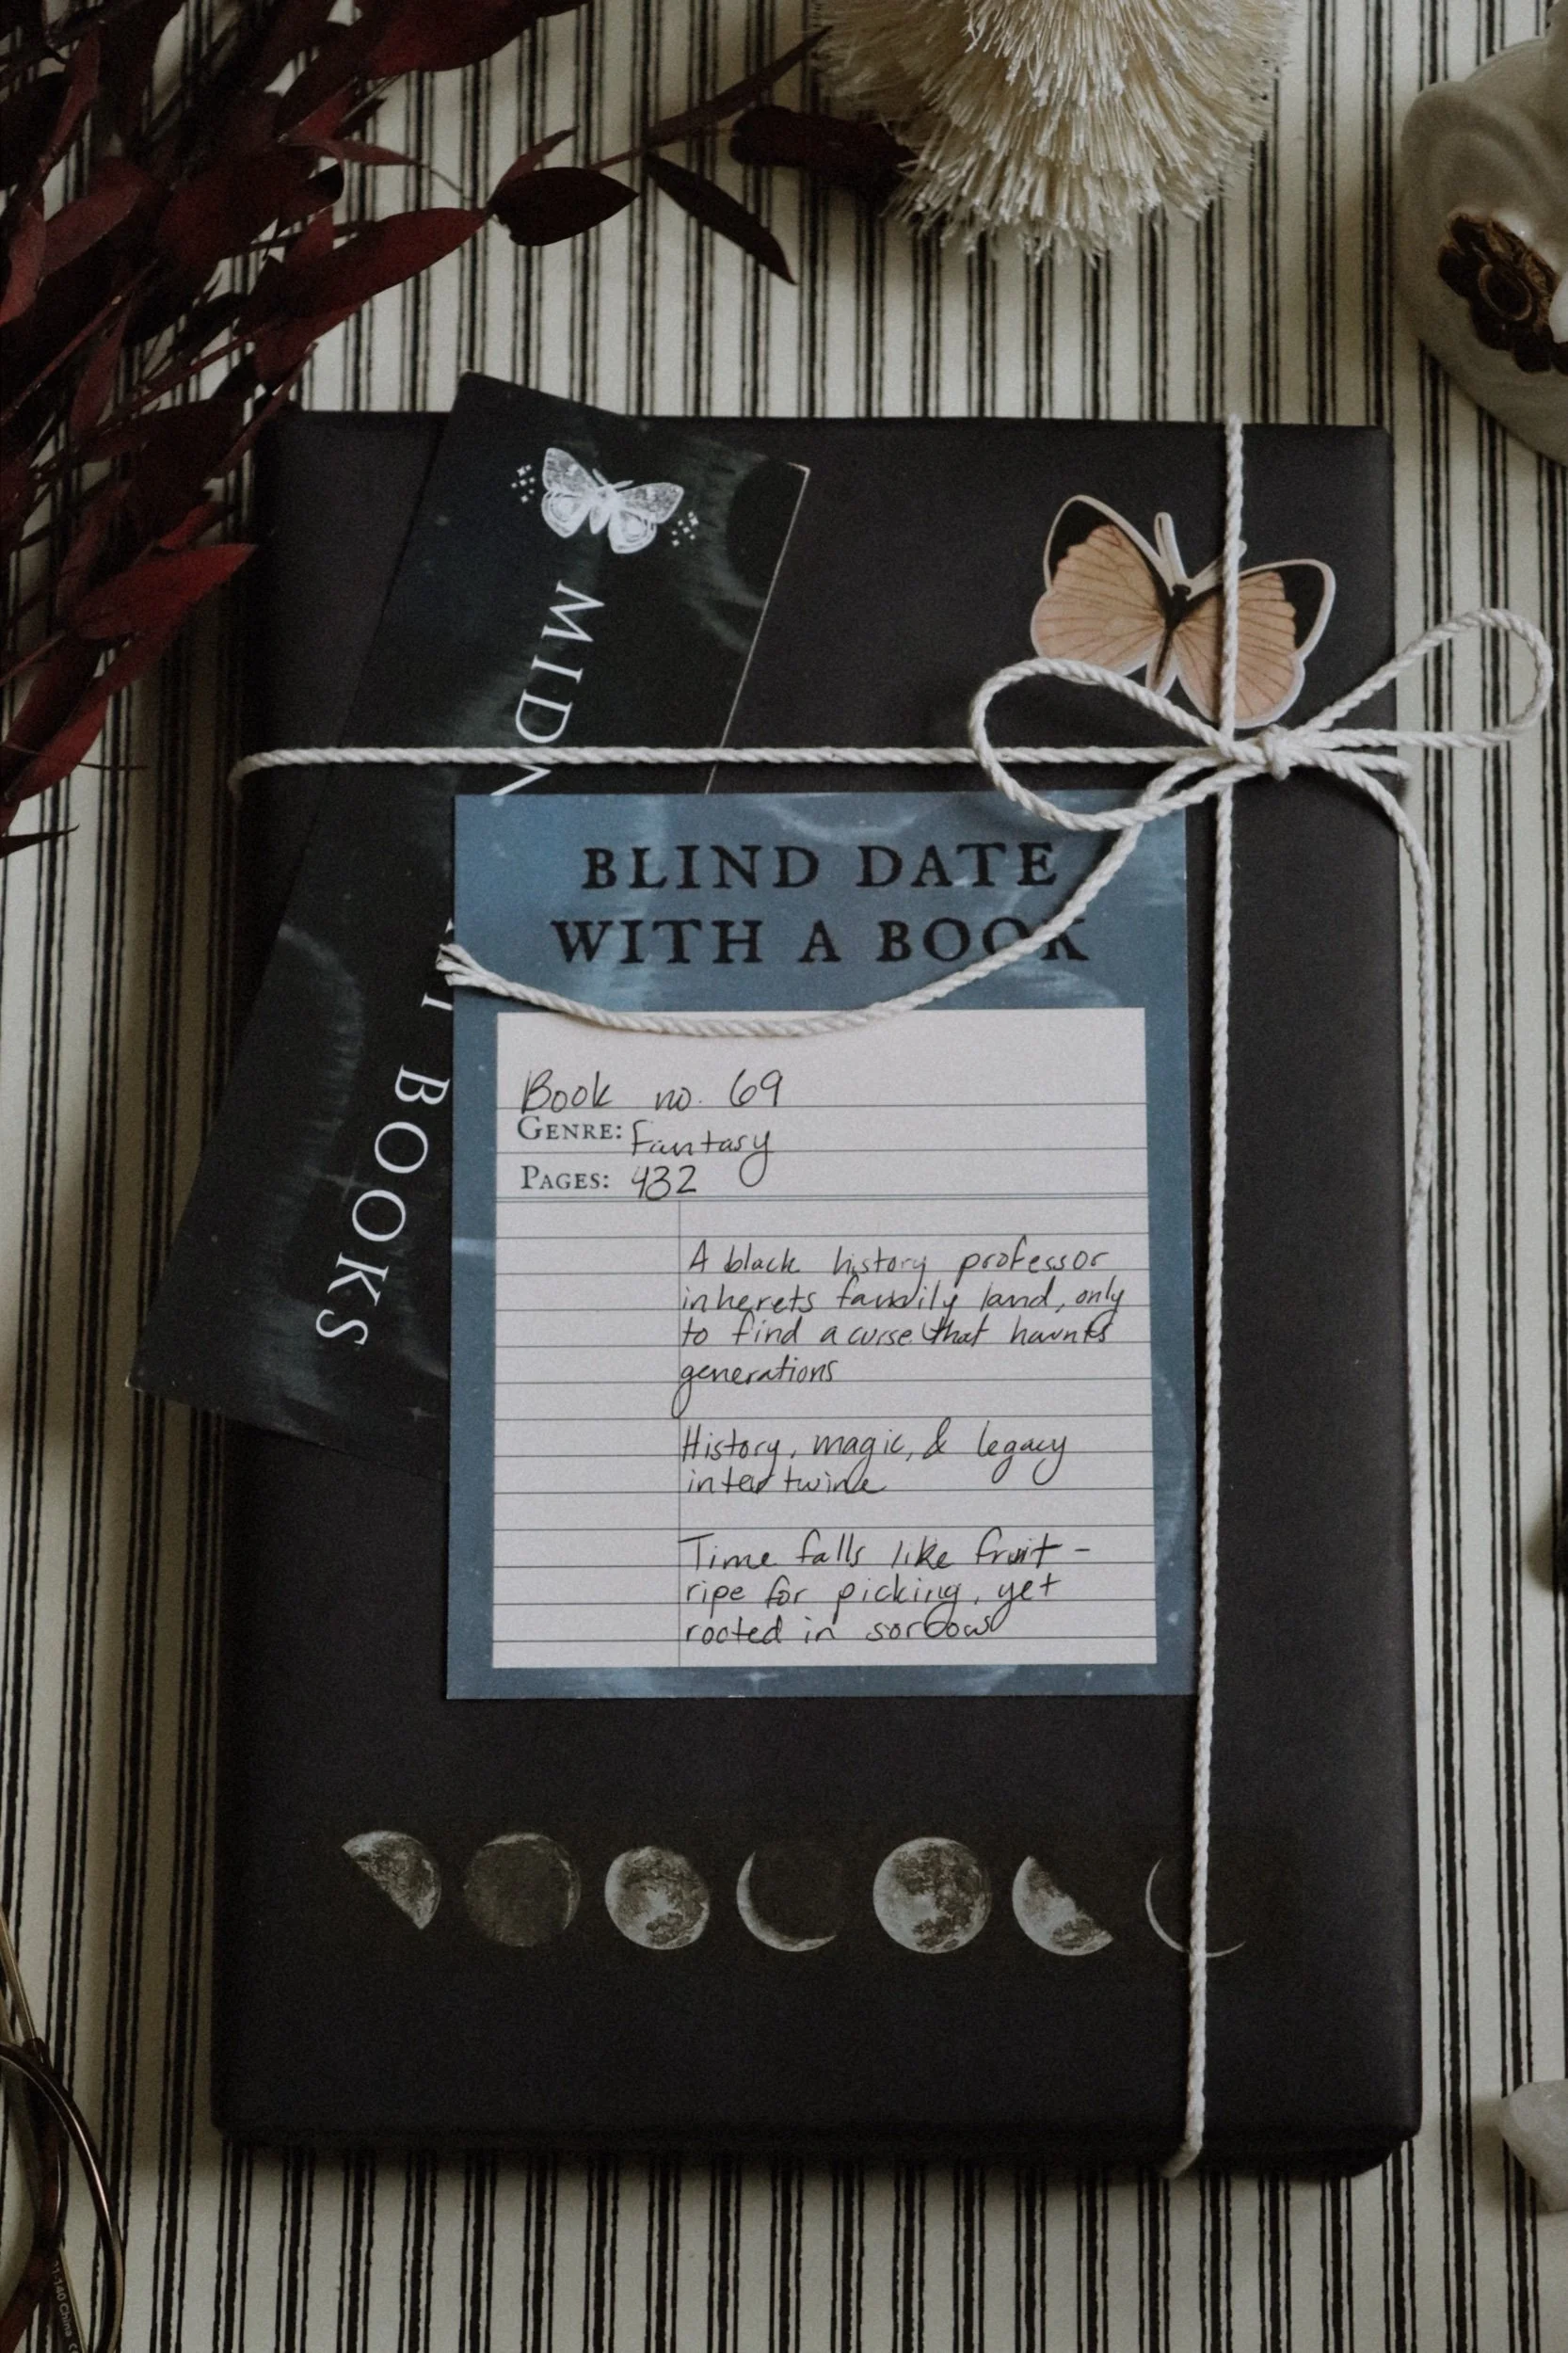 MIDW
T BOOKS
BLIND DATE
WITH A BOOK
Book no. 69
GENRE: Fantasy
PAGES: 432
A black history professor
inherets family land, only
to find a curse that haunts
generations
History, magic, & legacy
intertwine
Time falls like fruit -
ripe for picking, yet
rooted in sorrows
140 China